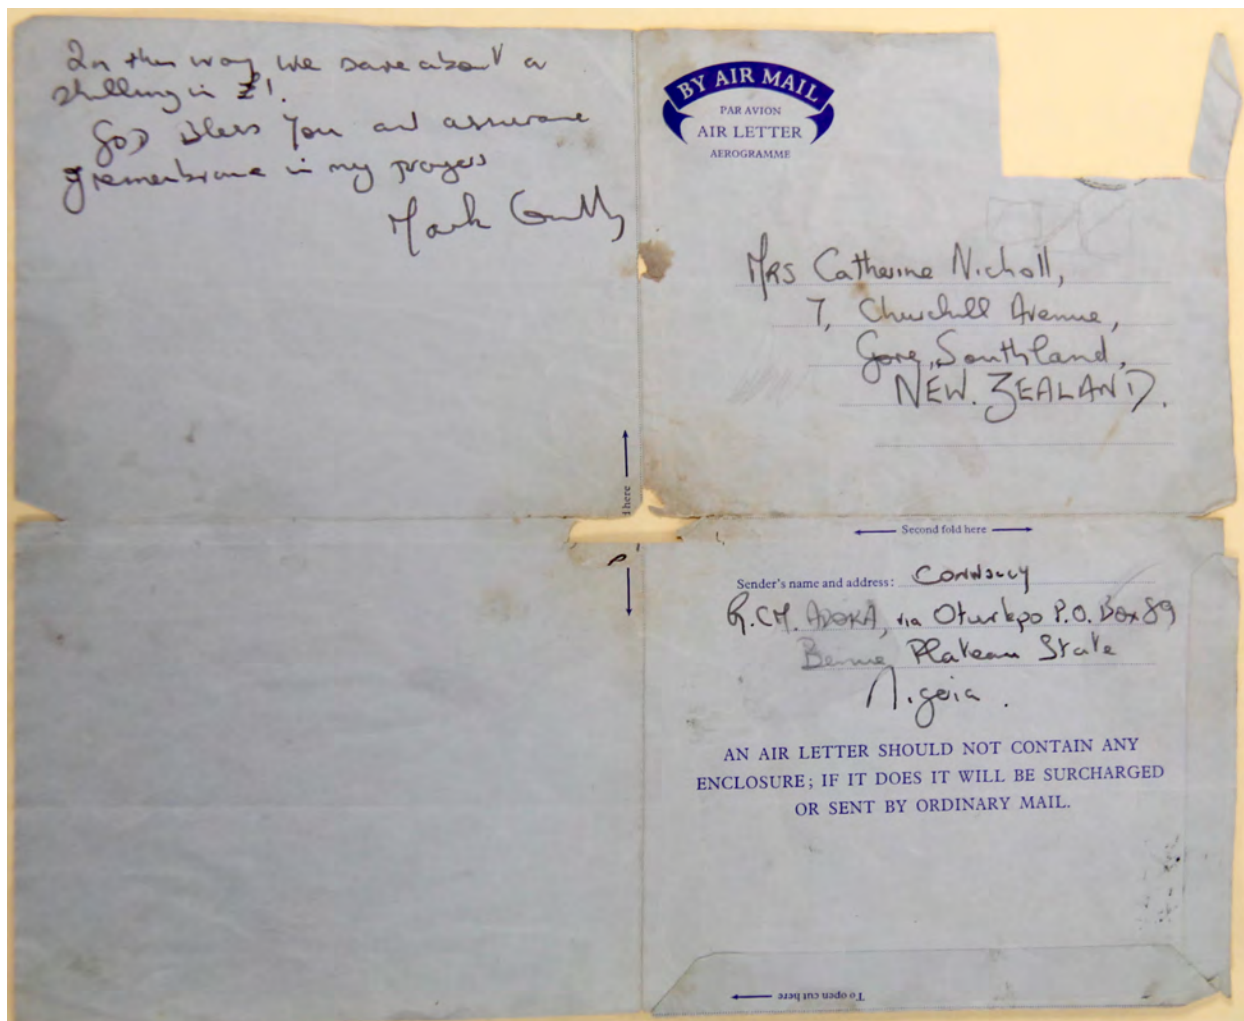 In this way we save about a
shilling in £1.
God Bless you and assurance
of remembrance in my prayers
Mark
BY AIR MAIL
PAR AVION
AIR LETTER
AEROGRAMME
Mrs Catherine Nicholl,
7, Churchill Avenue,
Gore, Southland,
NEW. ZEALAND.
here
Second fold here
Sender's name and address: CONNOLLY
R.C.M. ADOKA, via Oturkpo P.O. Box 89
Benue Plateau State
Nigeria.
AN AIR LETTER SHOULD NOT CONTAIN ANY
ENCLOSURE; IF IT DOES IT WILL BE SURCHARGED
OR SENT BY ORDINARY MAIL.
To open cut here